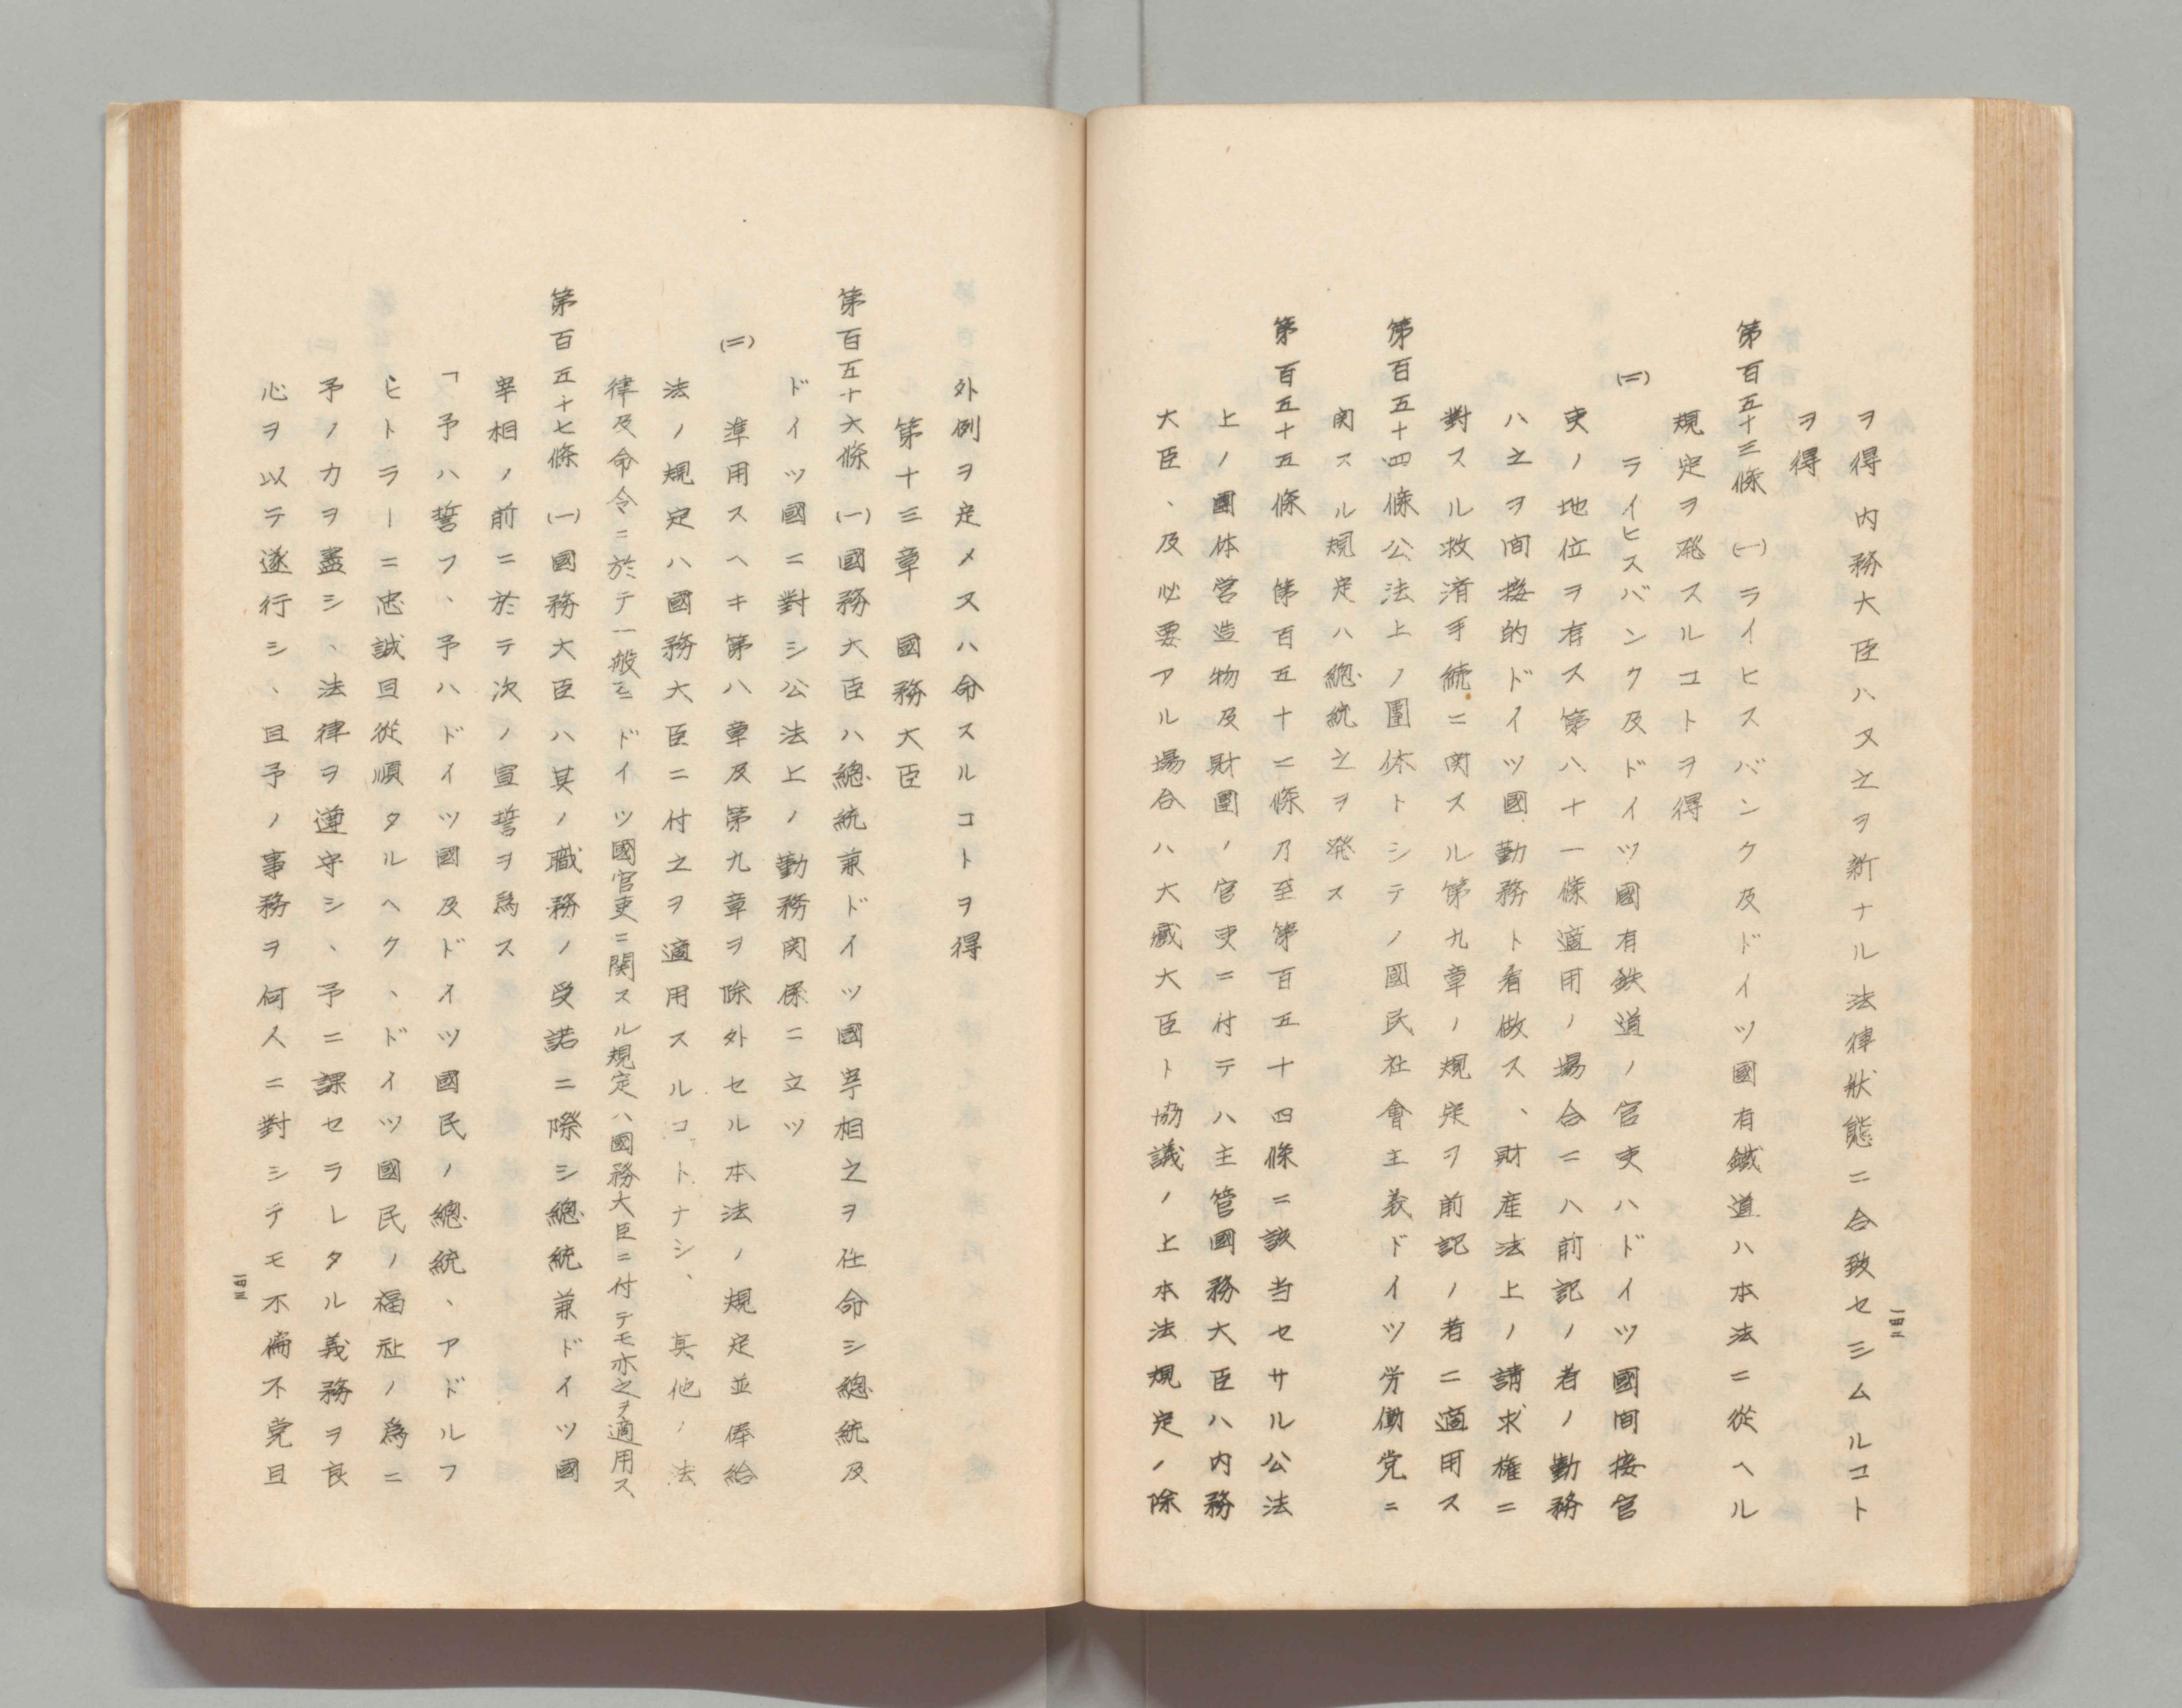 ヲ得内務大臣ハ又之ヲ新ナル法律狀態ニ合致セシムルコト
ヲ得
第百五十三條 (一)ライヒスバンク及ドイツ國有鐵道ハ本法ニ從ヘル
規定ヲ発スルコトヲ得
(二) ライヒスバンク及ドイツ國有鉄道ノ官吏ハドイツ國間接官
吏ノ地位ヲ有ス第八十一條適用ノ場合ニハ前記ノ者ノ勤務
ハ之ヲ間接的ドイツ國勤務ト看做ス、財産法上ノ請求権ニ
對スル救済手続ニ関スル第九章ノ規定ヲ前記ノ者ニ適用ス
第百五十四條 公法上ノ團体トシテノ國民社會主義ドイツ労働党ニ
関スル規定ハ總統之ヲ発ス
第百五十五條 第百五十二條乃至第百五十四條ニ該当セサル公法
上ノ團体営造物及財團ノ官吏ニ付テハ主管國務大臣ハ内務
大臣、及必要アル場合ハ大藏大臣ト協議ノ上本法規定ノ除
一四二
外例ヲ定メ又ハ命スルコトヲ得
第十三章 國務大臣
第百五十六條 (一)國務大臣ハ總統兼ドイツ國宰相之ヲ任命シ總統及
ドイツ國ニ對シ公法上ノ勤務関係ニ立ツ
(二) 準用スヘキ第八章及第九章ヲ除外セル本法ノ規定並俸給
法ノ規定ハ國務大臣ニ付之ヲ適用スルコトナシ、其他ノ法
律及命令ニ於テ一般ニドイツ國官吏ニ関スル規定ハ國務大臣ニ付テモ亦之ヲ適用ス
第百五十七條 (一)國務大臣ハ其ノ職務ノ受諾ニ際シ總統兼ドイツ國
宰相ノ前ニ於テ次ノ宣誓ヲ為ス
「予ハ誓フ、予ハドイツ國及ドイツ國民ノ總統、アドルフ
ヒトラーニ忠誠且從順タルヘク、ドイツ國民ノ福祉ノ為ニ
予ノカヲ盡シ、法律ヲ遵守シ、予ニ課セラレタル義務ヲ良
心ヲ以テ遂行シ、且予ノ事務ヲ何人ニ對シテモ不偏不党且
一四三